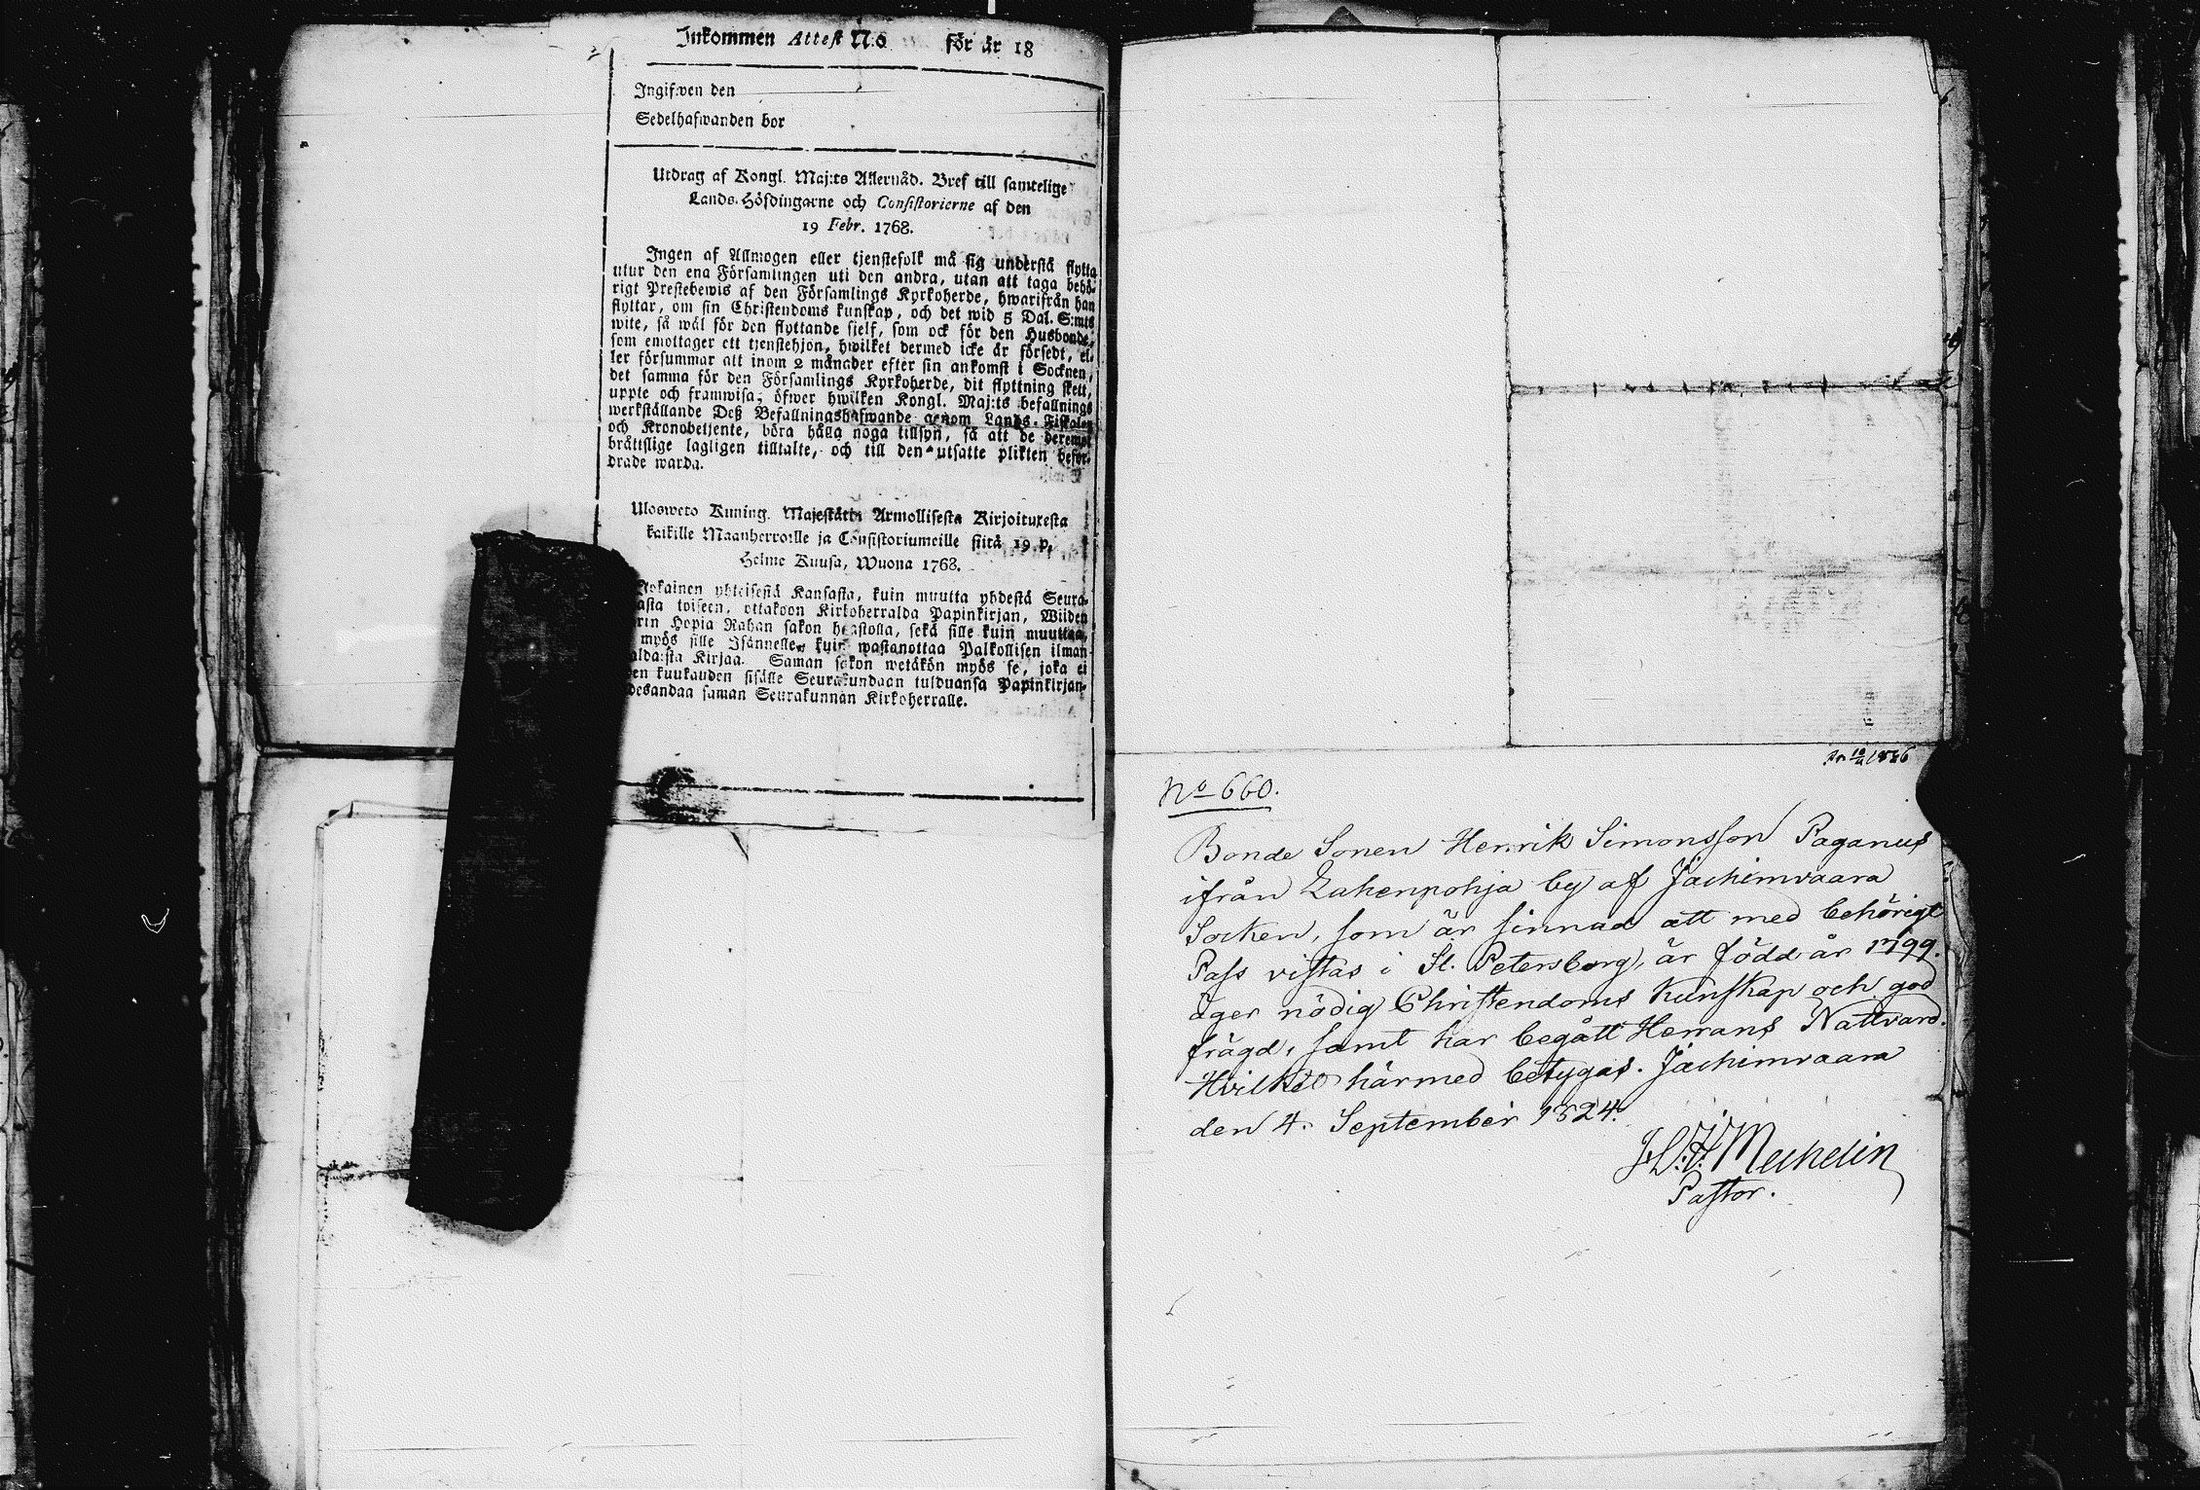 Inkommen Attest N:o för år 18
Ingifwen den
Sedelhafwanden bor
Utdrag af Kongl. Maj:ts Allernåd. Bref till samtelige
Lands-Höfdingarne och Consistorierne af den
19 Febr. 1768.
Ingen af Allmogen eller tjenstefolk må sig understå flytta
utur den ena Församlingen uti den andra, utan att taga behö-
rigt Prestebewis af den Församlings Kyrkoherde, hwarifrån han
flyttar, om sin Christendoms kunskap, och det wid 5 Dal. S:mts
wite, så wäl för den flyttande sjelf, som ock för den Husbonde,
som emottager ett tjenstehjon, hwilket dermed icke är försedt, el-
ler försummar att inom 2 månader efter sin ankomst i Socknen,
det samma för den Församlings Kyrkoherde, dit flyttning skett,
uppte och framwisa; öfwer hwilken Kongl. Maj:ts befallnings
werkställande Deß Befallningshafwande genom Lands-Fiskaler
och Kronobetjente, böra hålla noga tillsyn, så att de deremot
bråttslige lagligen tilltalte, och till den utsatte plikten befor-
drade warda.
Ulosweto Kuning. Majestätin Armollisesta Kirjoituxesta
kaikille Maanherroille ja Consistoriumeille siitä 19 p.
Helme Kuusa, Wuona 1768.
Jokainen yhteisestä Kansasta, kuin muutta yhdestä Seura-
asta toiseen, ottakoon Kirkoherralda Papinkirjan, Wiiden
rin Hopia Rahan sakon haastolla, sekä sille kuin muuttaa,
myös sille Isännelle, kuin wastanottaa Palkollisen ilman
aldaista Kirjaa. Saman sakon wetäkön myös se, joka ei
en kuukauden sisälle Seurakundaan tulduansa Papinkirjan-
desandaa saman Seurakunnan Kirkoherralle.
No 660.
Bonde Sonen Henrik Simonsson Paganus
ifrån Lahenpohja by af Jachimvaara
Socken, som är sinnad att med behörigt
Pass vistas i St. Petersborg, är född år 1799.
äger nödig Christendoms Kunskap och god
frägd, samt har begått Herrans Nattvard.
Hvilket härmed betygas. Jachimvaara
den 4. September 1824.
Mechelin
Pastor.